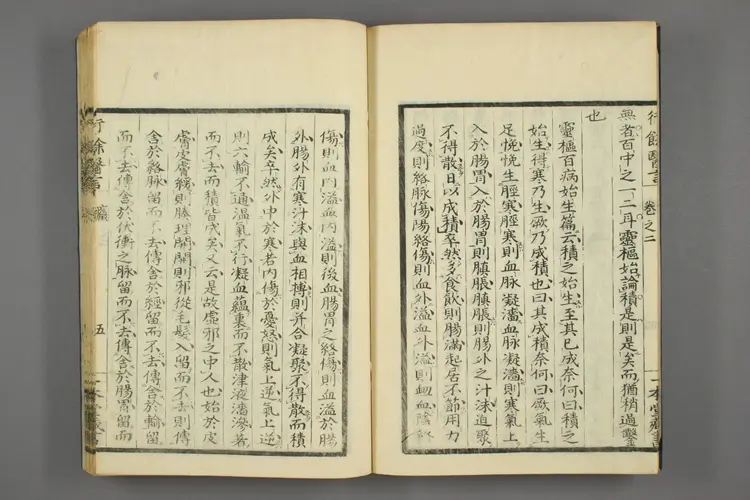 行餘醫言 卷之二
無者百中之一二耳靈樞始論積是則是矣而猶稍過鑿
也
靈樞百病始生篇云積之始生至其已成奈何曰積之
始生得寒乃生厥乃成積也曰其成積奈何曰厥氣生
足悗悗生脛寒脛寒則血脈凝濇血脈凝濇則寒氣上
入於腸胃入於腸胃則䐜脹䐜脹則腸外之汁沫迫聚
不得散日以成積卒然多食飲則腸滿起居不節用力
過度則絡脈傷陽絡傷則血外溢血外溢則衄血陰絡
傷則血內溢血內溢則後血腸胃之絡傷則血溢於腸
外腸外有寒汁沫與血相摶則并合凝聚不得散而積
成矣卒然外中於寒若內傷於憂怒則氣上逆氣上逆
則六輸不通溫氣不行凝血蘊裏而不散津液濇滲著
而不去而積皆成矣又云是故虛邪之中人也始於皮
膚皮膚緩則腠理開開則邪從毛髮入留而不去則傳
舍於絡脈留而不去傳舍於經留而不去傳舍於輸留
而不去傳舍於伏衝之脈留而不去傳舍於腸胃留而
行餘醫言 五